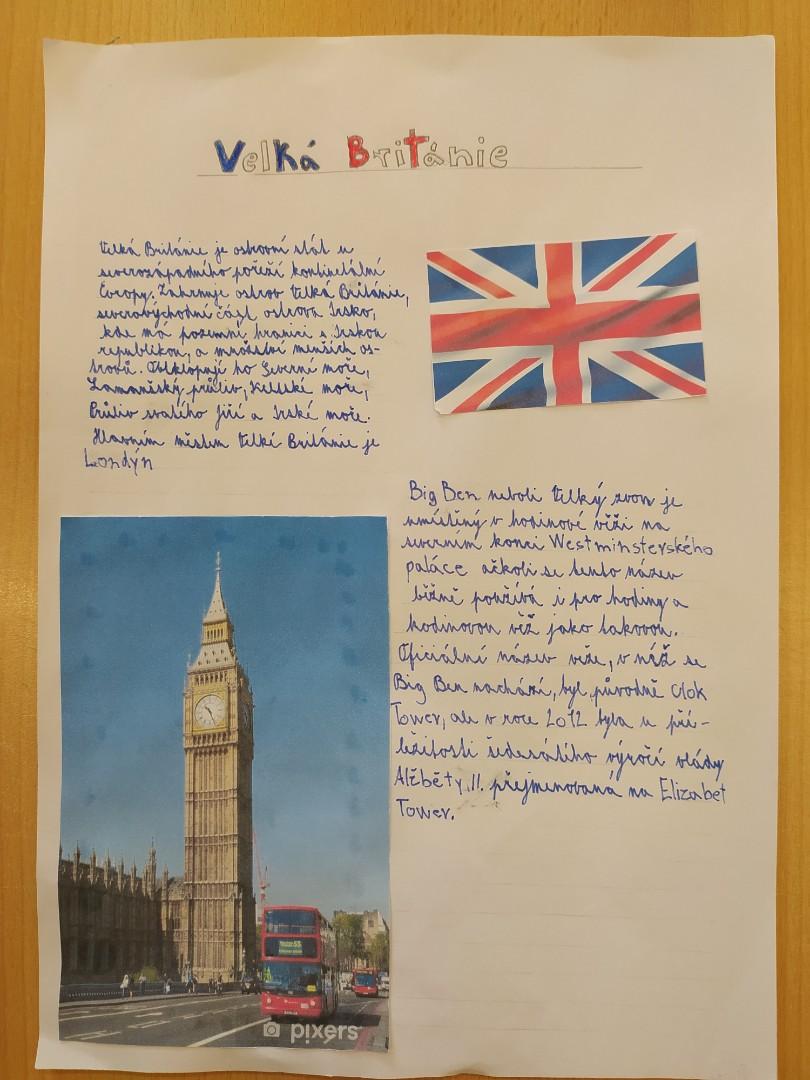 Velká Británie
Velká Británie je ostrovní stát u
severozápadního pořeží kontinetální
Evropy. Zahrnuje ostrov Velká Británie,
severovýchodní část ostrova Irsko,
kde má pozemní hranici s Irskou
republikou, a množství menších os-
trovů. Obklopují ho Severní moře,
Lamanšský průliv, Keltské moře,
Průliv svatého Jiří a Irské moře.
Hlavním městem Velké Británie je
Londýn
Big Ben neboli Velký zvon je
umístěný v hodinové věži na
severním konci Westminsterského
paláce ačkoli se tento název
běžně používá i pro hodiny a
hodinovou věž jako takovou.
Oficiální název veže, v níž se
Big Ben nachází, byl původně Clok
Tower, ale v roce 2012 byla u pří-
ležitosti šedesátého výročí vlády
Alžběty II. přejmenovaná na Elizabet
Tower.
pixers